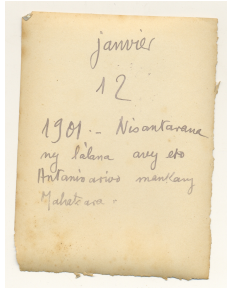 janvier
12
1901.- Nisantarana
ny làlana avy eto
Antananarivo mankany
Mahatsara.